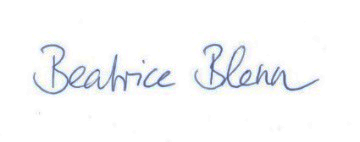 Beatrice Blenn